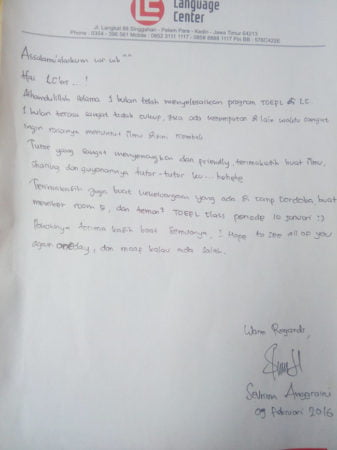 Language
Center
Jl. Langkat 88 Singgahan - Pelem Pare - Kediri - Jawa Timur 64213
Assalamu'alaikum wr wb
Hai LC'ers ...!
Alhamdulillah selama 1 bulan telah menyelesaikan program TOEFL di LC.
1 bulan terasa sangat tidak cukup, jika ada kesempatan di lain waktu sangat
ingin rasanya menuntut ilmu disini kembali
Tutor yang sangat menyenangkan dan friendly, terimakasih buat ilmu,
sharing dan guyonannya tutor-tutor ku... hehehe
Terimakasih juga buat kekeluargaan yang ada di camp Cordoba, buat
member room 5, dan teman² TOEFL class periode 10 januari :)
Pokoknya terima kasih buat semuanya, I Hope to see all of you
again oneday, dan maaf kalau ada salah.
Warm Regards,
Selviana Anggraini
09 Februari 2016